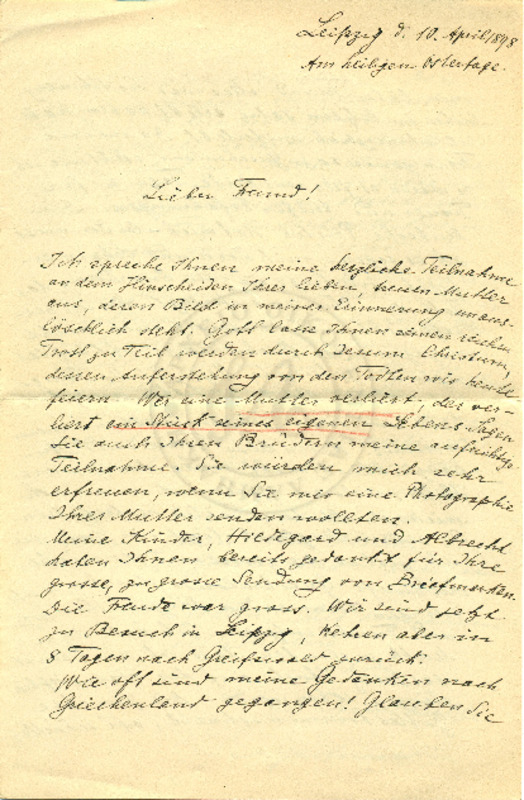 Leipzig d. 10. April 1898
Am heiligen Ostertage.
Lieber Freund!
Ich spreche Ihnen meine herzliche Teilnahme
an dem Hinscheiden Ihrer lieben, teuren Mutter
aus, deren Bild in meiner Erinnerung unaus-
löschlich steht. Gott lasse Ihnen seinen reichen
Trost zu Teil werden durch Jesum Christum,
dessen Auferstehung von den Todten wir heute
feiern. Wer eine Mutter verliert, der ver-
liert ein Stück seines eigenen Lebens. Sagen
Sie auch Ihren Brüdern meine aufrichtige
Teilnahme. Sie würden mich sehr
erfreuen, wenn Sie mir eine Photographie
Ihrer Mutter senden wollten.
Meine Kinder, Hildegard und Albrecht
haben Ihnen bereits gedankt für Ihre
grosse, zu grosse Sendung von Briefmarken.
Die Freude war gross. Wir sind jetzt
zu Besuch in Leipzig, kehren aber in
8 Tagen nach Greifswald zurück.
Wie oft sind meine Gedanken nach
Griechenland gegangen! Glauben Sie